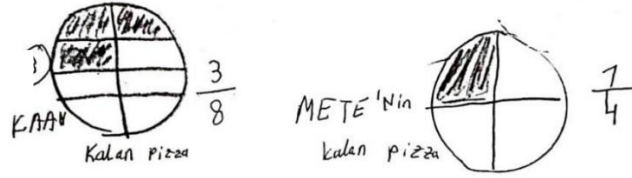 3)
3/8
KAAN
Kalan pizza
METE'Nin
kalan pizza
1/4